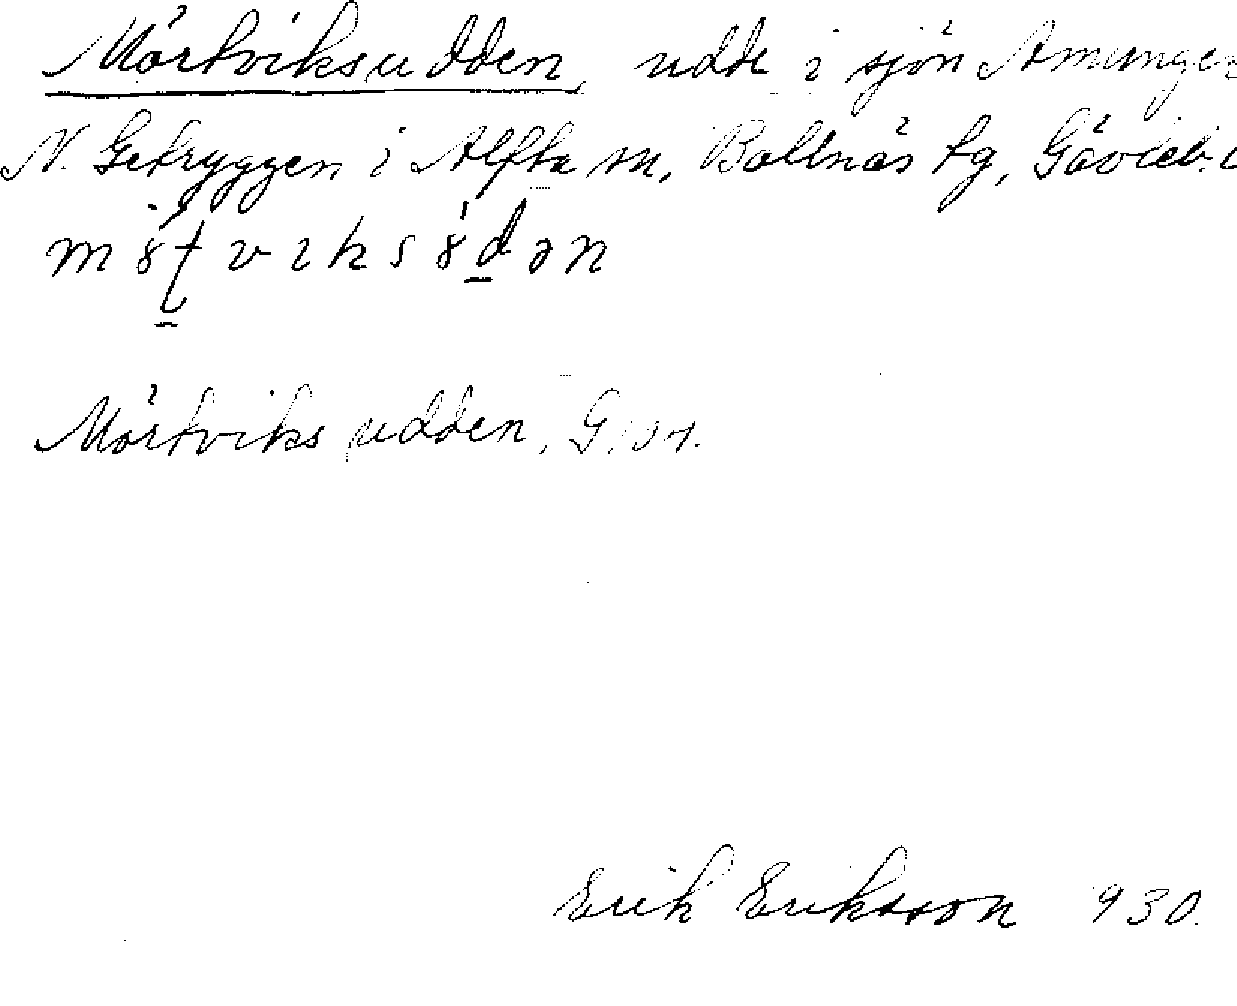 Mörtviksudden, udde i sjön Amungen
N. Getryggen i Alfta sn, Bollnäs tg, Gävleb. l
Mörtviksudden, G.
Erik Eriksson 930.